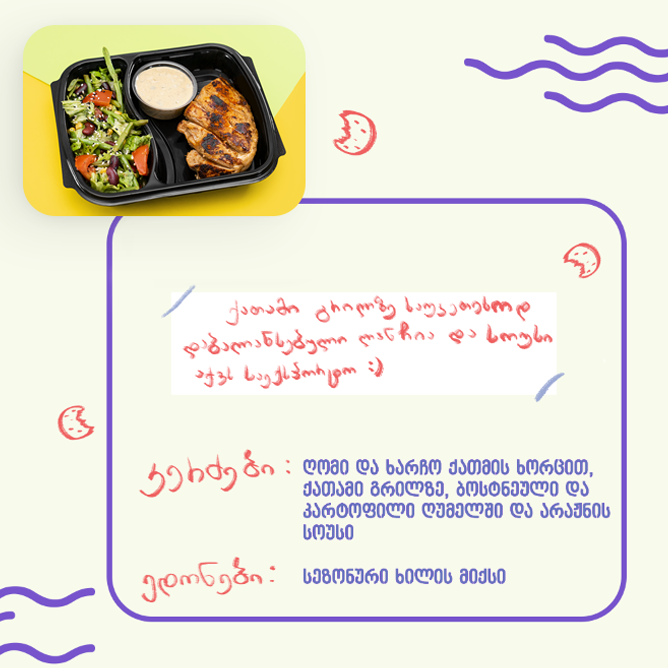 ქათამი გრილზე საუკეთესოდ
დაბალანსებული ლანჩია და სოუსი
აქვს საექსპორტო :)
კერძები:
ღომი და ხარჩო ქათმის ხორცით,
ქათამი გრილზე, ბოსტნეული და
კარტოფილი ღუმელში და არაჟნის
სოუსი
ედონები:
სეზონური ხილის მიქსი